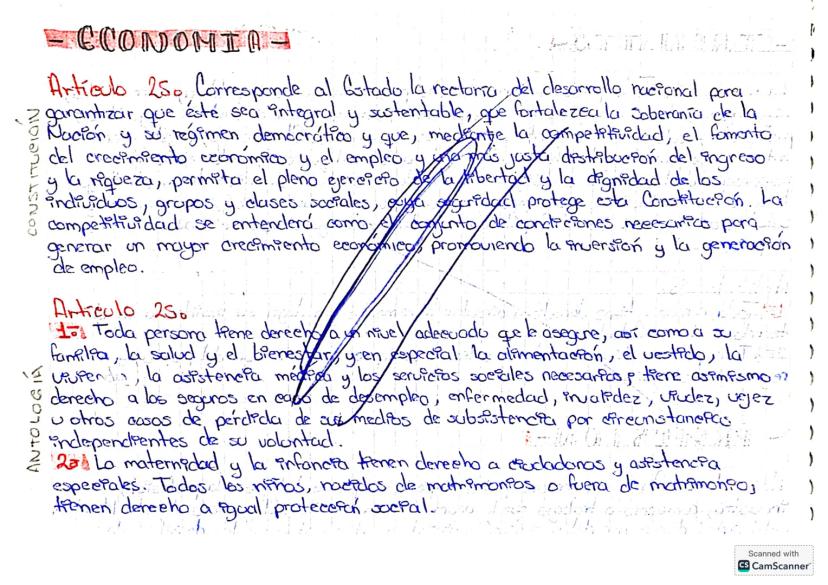 - ECONOMIA -
CONSTITUCIÓN
Artículo 25. Corresponde al Estado la rectoría del desarrollo nacional para
garantizar que éste sea integral y sustentable, que fortalezca la Soberanía de la
Nación y su régimen democrático y que, mediante la competitividad, el fomento
del crecimiento económico y el empleo y una más justa distribución del ingreso
y la riqueza, permita el pleno ejercicio de la libertad y la dignidad de los
individuos, grupos y clases sociales, cuya seguridad protege esta Constitución. La
competitividad se entenderá como el conjunto de condiciones necesarias para
generar un mayor crecimiento económico, promoviendo la inversión y la generación
de empleo.
ANTOLOGÍA
Artículo 25.
1.- Toda persona tiene derecho a un nivel adecuado que le asegure, así como a su
familia, la salud y el bienestar, y en especial la alimentación, el vestido, la
la asistencia médica y los servicios sociales necesarios; tiene asimismo
derecho a los seguros en caso de desempleo, enfermedad, invalidez, viudez, vejez
u otros casos de pérdida de sus medios de subsistencia por circunstancias
independientes de su voluntad.
2.- La maternidad y la infancia tienen derecho a ciudadanos y asistencia
especiales. Todos los niños, nacidos de matrimonios o fuera de matrimonio,
tienen derecho a igual protección social.
Scanned with
CS CamScanner